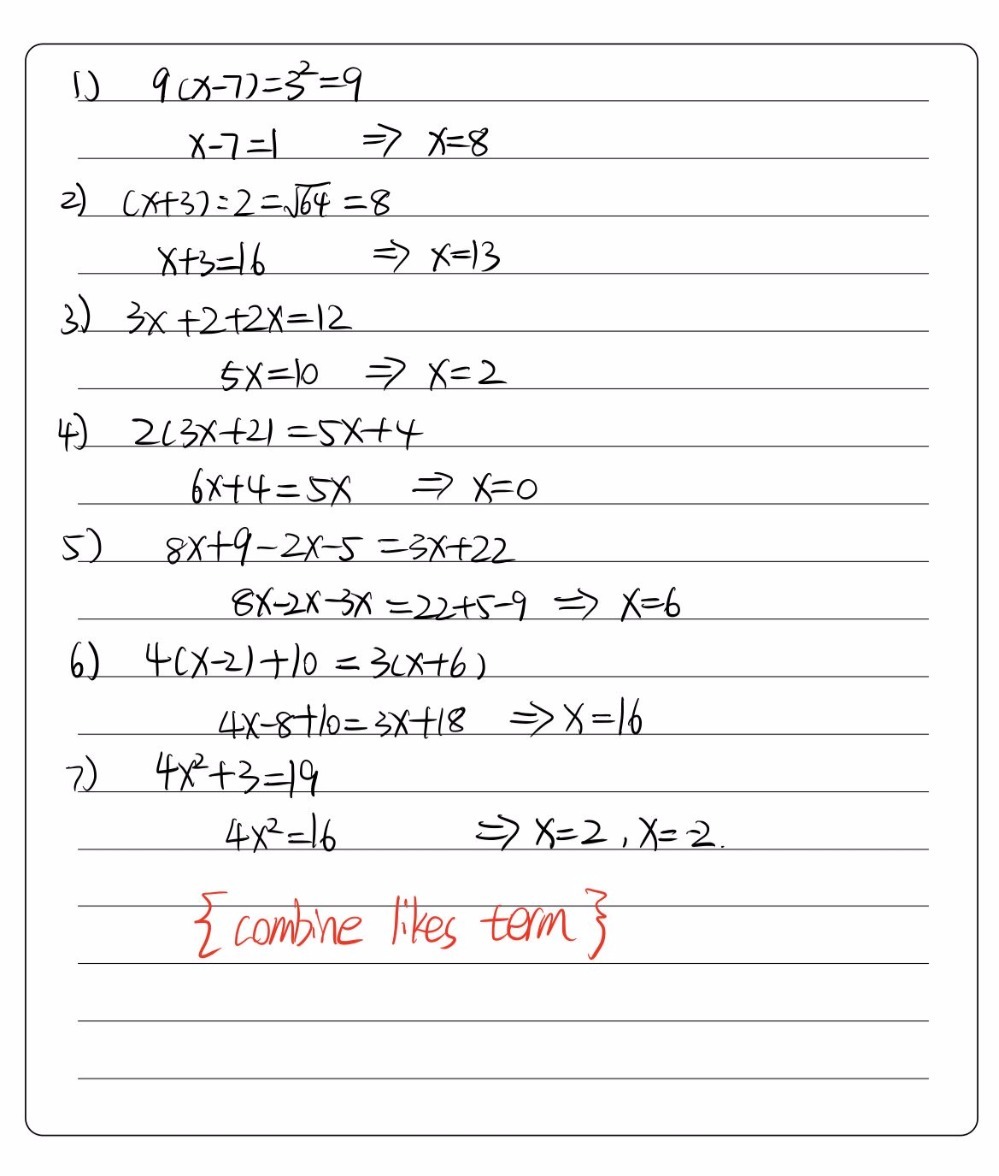 1) 9(x-7)=3²=9
x-7=1 ⇒ x=8
2) (x+3)÷2=√64=8
x+3=16 ⇒ x=13
3) 3x+2+2x=12
5x=10 ⇒ x=2
4) 2(3x+2)=5x+4
6x+4=5x ⇒ x=0
5) 8x+9-2x-5=3x+22
8x-2x-3x=22+5-9 ⇒ x=6
6) 4(x-2)+10=3(x+6)
4x-8+10=3x+18 ⇒ x=16
7) 4x²+3=19
4x²=16 ⇒ x=2, x=-2.
{combine likes term}